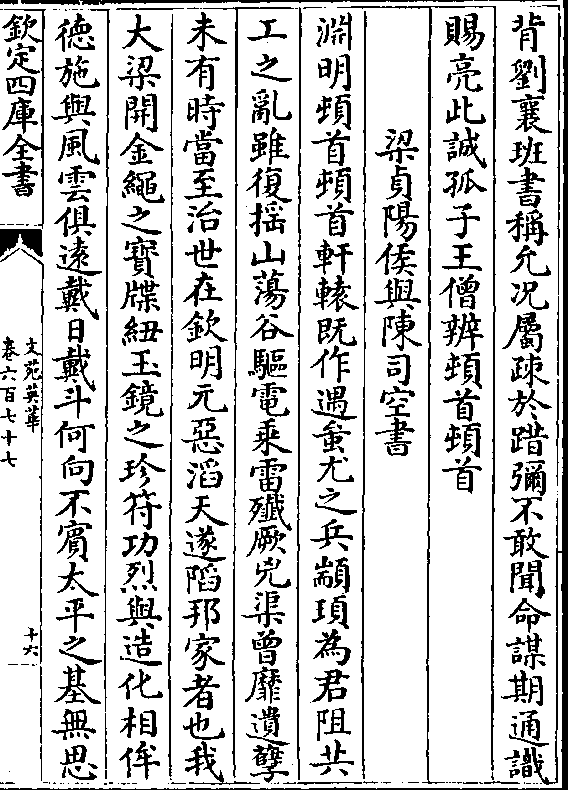 背劉襄班書稱允况屬疎於踖彌不敢聞命謀期通識
賜亮此誠孤子王僧辨頓首頓首
梁貞陽侯與陳司空書
淵明頓首頓首軒轅既作遇蚩尤之兵顓頊為君阻共
工之亂雖復揺山蕩谷驅電乘雷殱厥兇渠曾靡遺孽
未有時當至治世在欽明元惡滔天遂陷邦家者也我
大梁開金繩之寳牒紐玉鏡之珍符功烈與造化相侔
德施與風雲俱遠戴日戴斗何向不賓太平之基無思
欽定四庫全書
文苑英華
卷六百七十七
十六